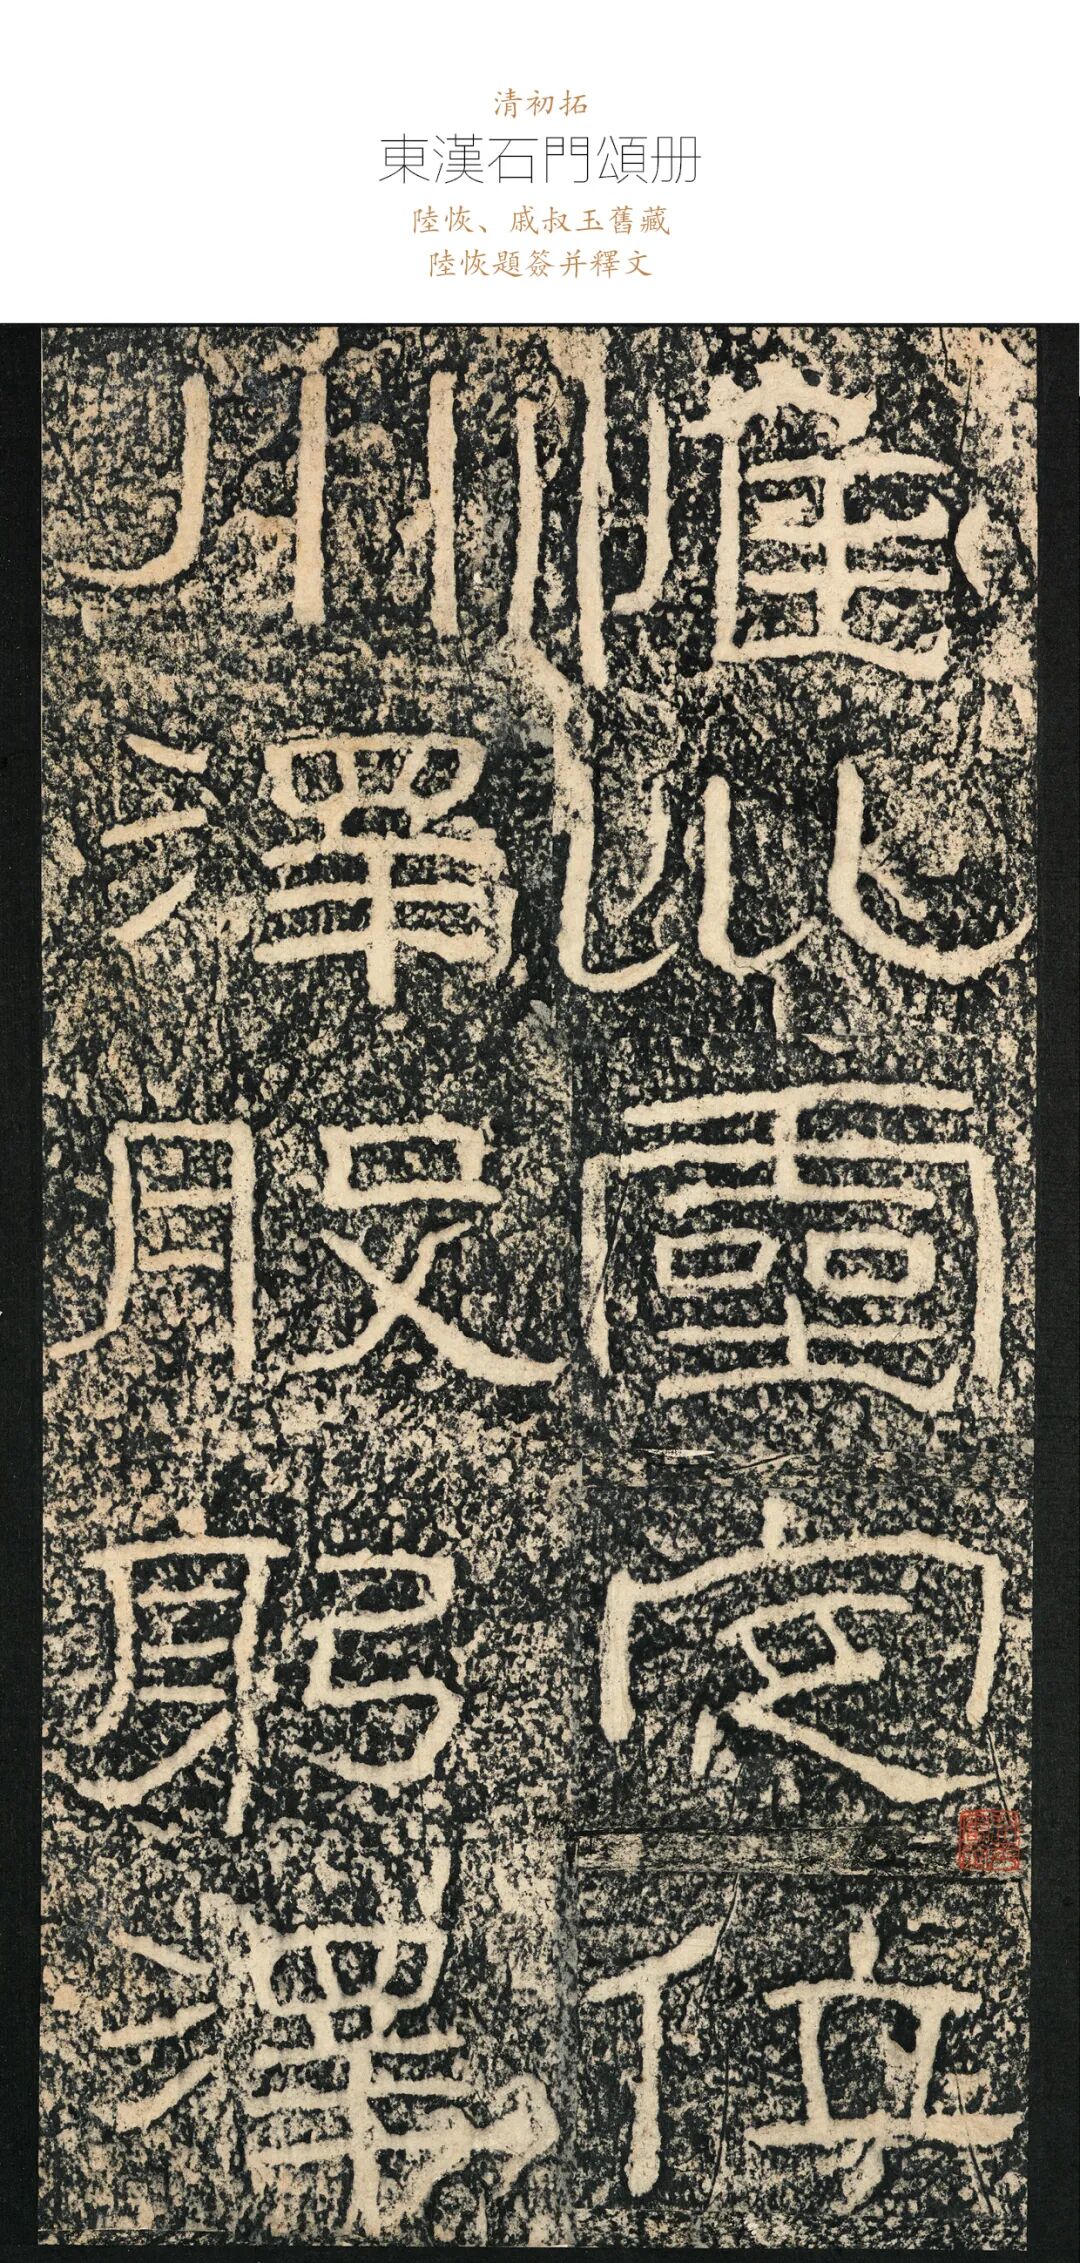 清初拓
東漢石門頌册
陸恢、戚叔玉舊藏
陸恢題簽并釋文
惟巛靈定位
川澤股躬澤